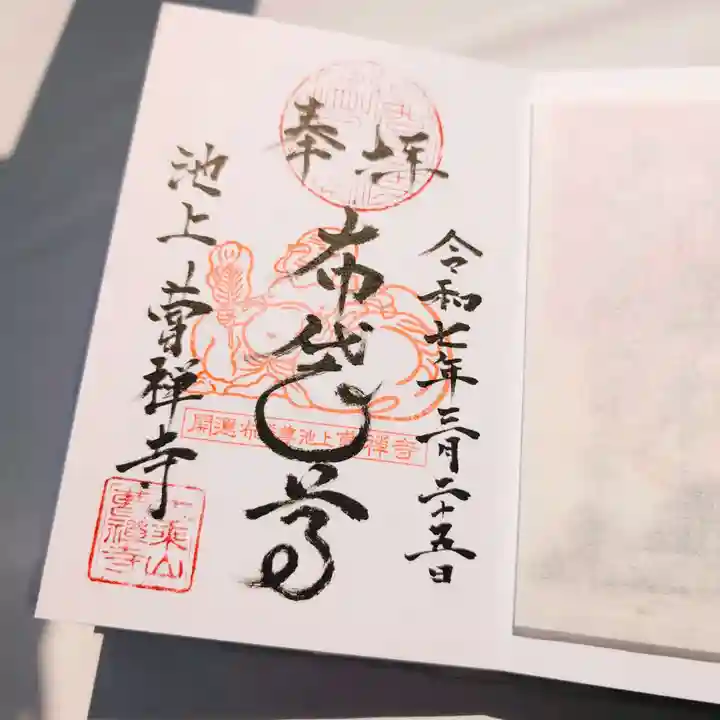 奉拝
令和七年三月二十五日
布袋尊
池上 曹禅寺
開運布袋尊池上曹禅寺